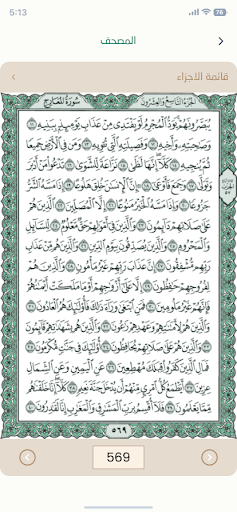 5:13
76
المصحف
قائمة الأجزاء
سُورَةُ المَعَارِجِ
الجُزءُ التَّاسِعُ وَالعِشْرُونَ
يُبَصَّرُونَهُمْ ۚ يَوَدُّ ٱلْمُجْرِمُ لَوْ يَفْتَدِى مِنْ عَذَابِ يَوْمِئِذٍۭ بِبَنِيهِ ١١
وَصَٰحِبَتِهِۦ وَأَخِيهِ ١٢ وَفَصِيلَتِهِ ٱلَّتِى تُـْٔوِيهِ ١٣ وَمَن فِى ٱلْأَرْضِ جَمِيعًا
ثُمَّ يُنجِيهِ ١٤ كَلَّآ ۖ إِنَّهَا لَظَىٰ ١٥ نَزَّاعَةً لِّلشَّوَىٰ ١٦ تَدْعُوا۟ مَنْ أَدْبَرَ
وَتَوَلَّىٰ ١٧ وَجَمَعَ فَأَوْعَىٰٓ ١٨ ۞ إِنَّ ٱلْإِنسَٰنَ خُلِقَ هَلُوعًا ١٩ إِذَا مَسَّهُ ٱلشَّرُّ
جَزُوعًا ٢٠ وَإِذَا مَسَّهُ ٱلْخَيْرُ مَنُوعًا ٢١ إِلَّا ٱلْمُصَلِّينَ ٢٢ ٱلَّذِينَ هُمْ
عَلَىٰ صَلَاتِهِمْ دَآئِمُونَ ٢٣ وَٱلَّذِينَ فِىٓ أَمْوَٰلِهِمْ حَقٌّ مَّعْلُومٌ ٢٤ لِّلسَّآئِلِ
وَٱلْمَحْرُومِ ٢٥ وَٱلَّذِينَ يُصَدِّقُونَ بِيَوْمِ ٱلدِّينِ ٢٦ وَٱلَّذِينَ هُم مِّنْ عَذَابِ
رَبِّهِم مُّشْفِقُونَ ٢٧ إِنَّ عَذَابَ رَبِّهِمْ غَيْرُ مَأْمُونٍ ٢٨ وَٱلَّذِينَ هُمْ
لِفُرُوجِهِمْ حَٰفِظُونَ ٢٩ إِلَّا عَلَىٰٓ أَزْوَٰجِهِمْ أَوْ مَا مَلَكَتْ أَيْمَٰنُهُمْ
فَإِنَّهُمْ غَيْرُ مَلُومِينَ ٣٠ فَمَنِ ٱبْتَغَىٰ وَرَآءَ ذَٰلِكَ فَأُو۟لَٰٓئِكَ هُمُ ٱلْعَادُونَ ٣١
وَٱلَّذِينَ هُمْ لِأَمَٰنَٰتِهِمْ وَعَهْدِهِمْ رَٰعُونَ ٣٢ وَٱلَّذِينَ هُم بِشَهَٰدَٰتِهِمْ قَآئِمُونَ
٣٣ وَٱلَّذِينَ هُمْ عَلَىٰ صَلَاتِهِمْ يُحَافِظُونَ ٣٤ أُو۟لَٰٓئِكَ فِى جَنَّٰتٍ مُّكْرَمُونَ ٣٥
فَمَالِ ٱلَّذِينَ كَفَرُوا۟ قِبَلَكَ مُهْطِعِينَ ٣٦ عَنِ ٱلْيَمِينِ وَعَنِ ٱلشِّمَالِ
عِزِينَ ٣٧ أَيَطْمَعُ كُلُّ ٱمْرِئٍ مِّنْهُمْ أَن يُدْخَلَ جَنَّةَ نَعِيمٍ ٣٨ كَلَّآ ۖ إِنَّا خَلَقْنَٰهُم
مِّمَّا يَعْلَمُونَ ٣٩ فَلَآ أُقْسِمُ بِرَبِّ ٱلْمَشَٰرِقِ وَٱلْمَغَٰرِبِ إِنَّا لَقَٰدِرُونَ ٤٠
٥٦٩
569